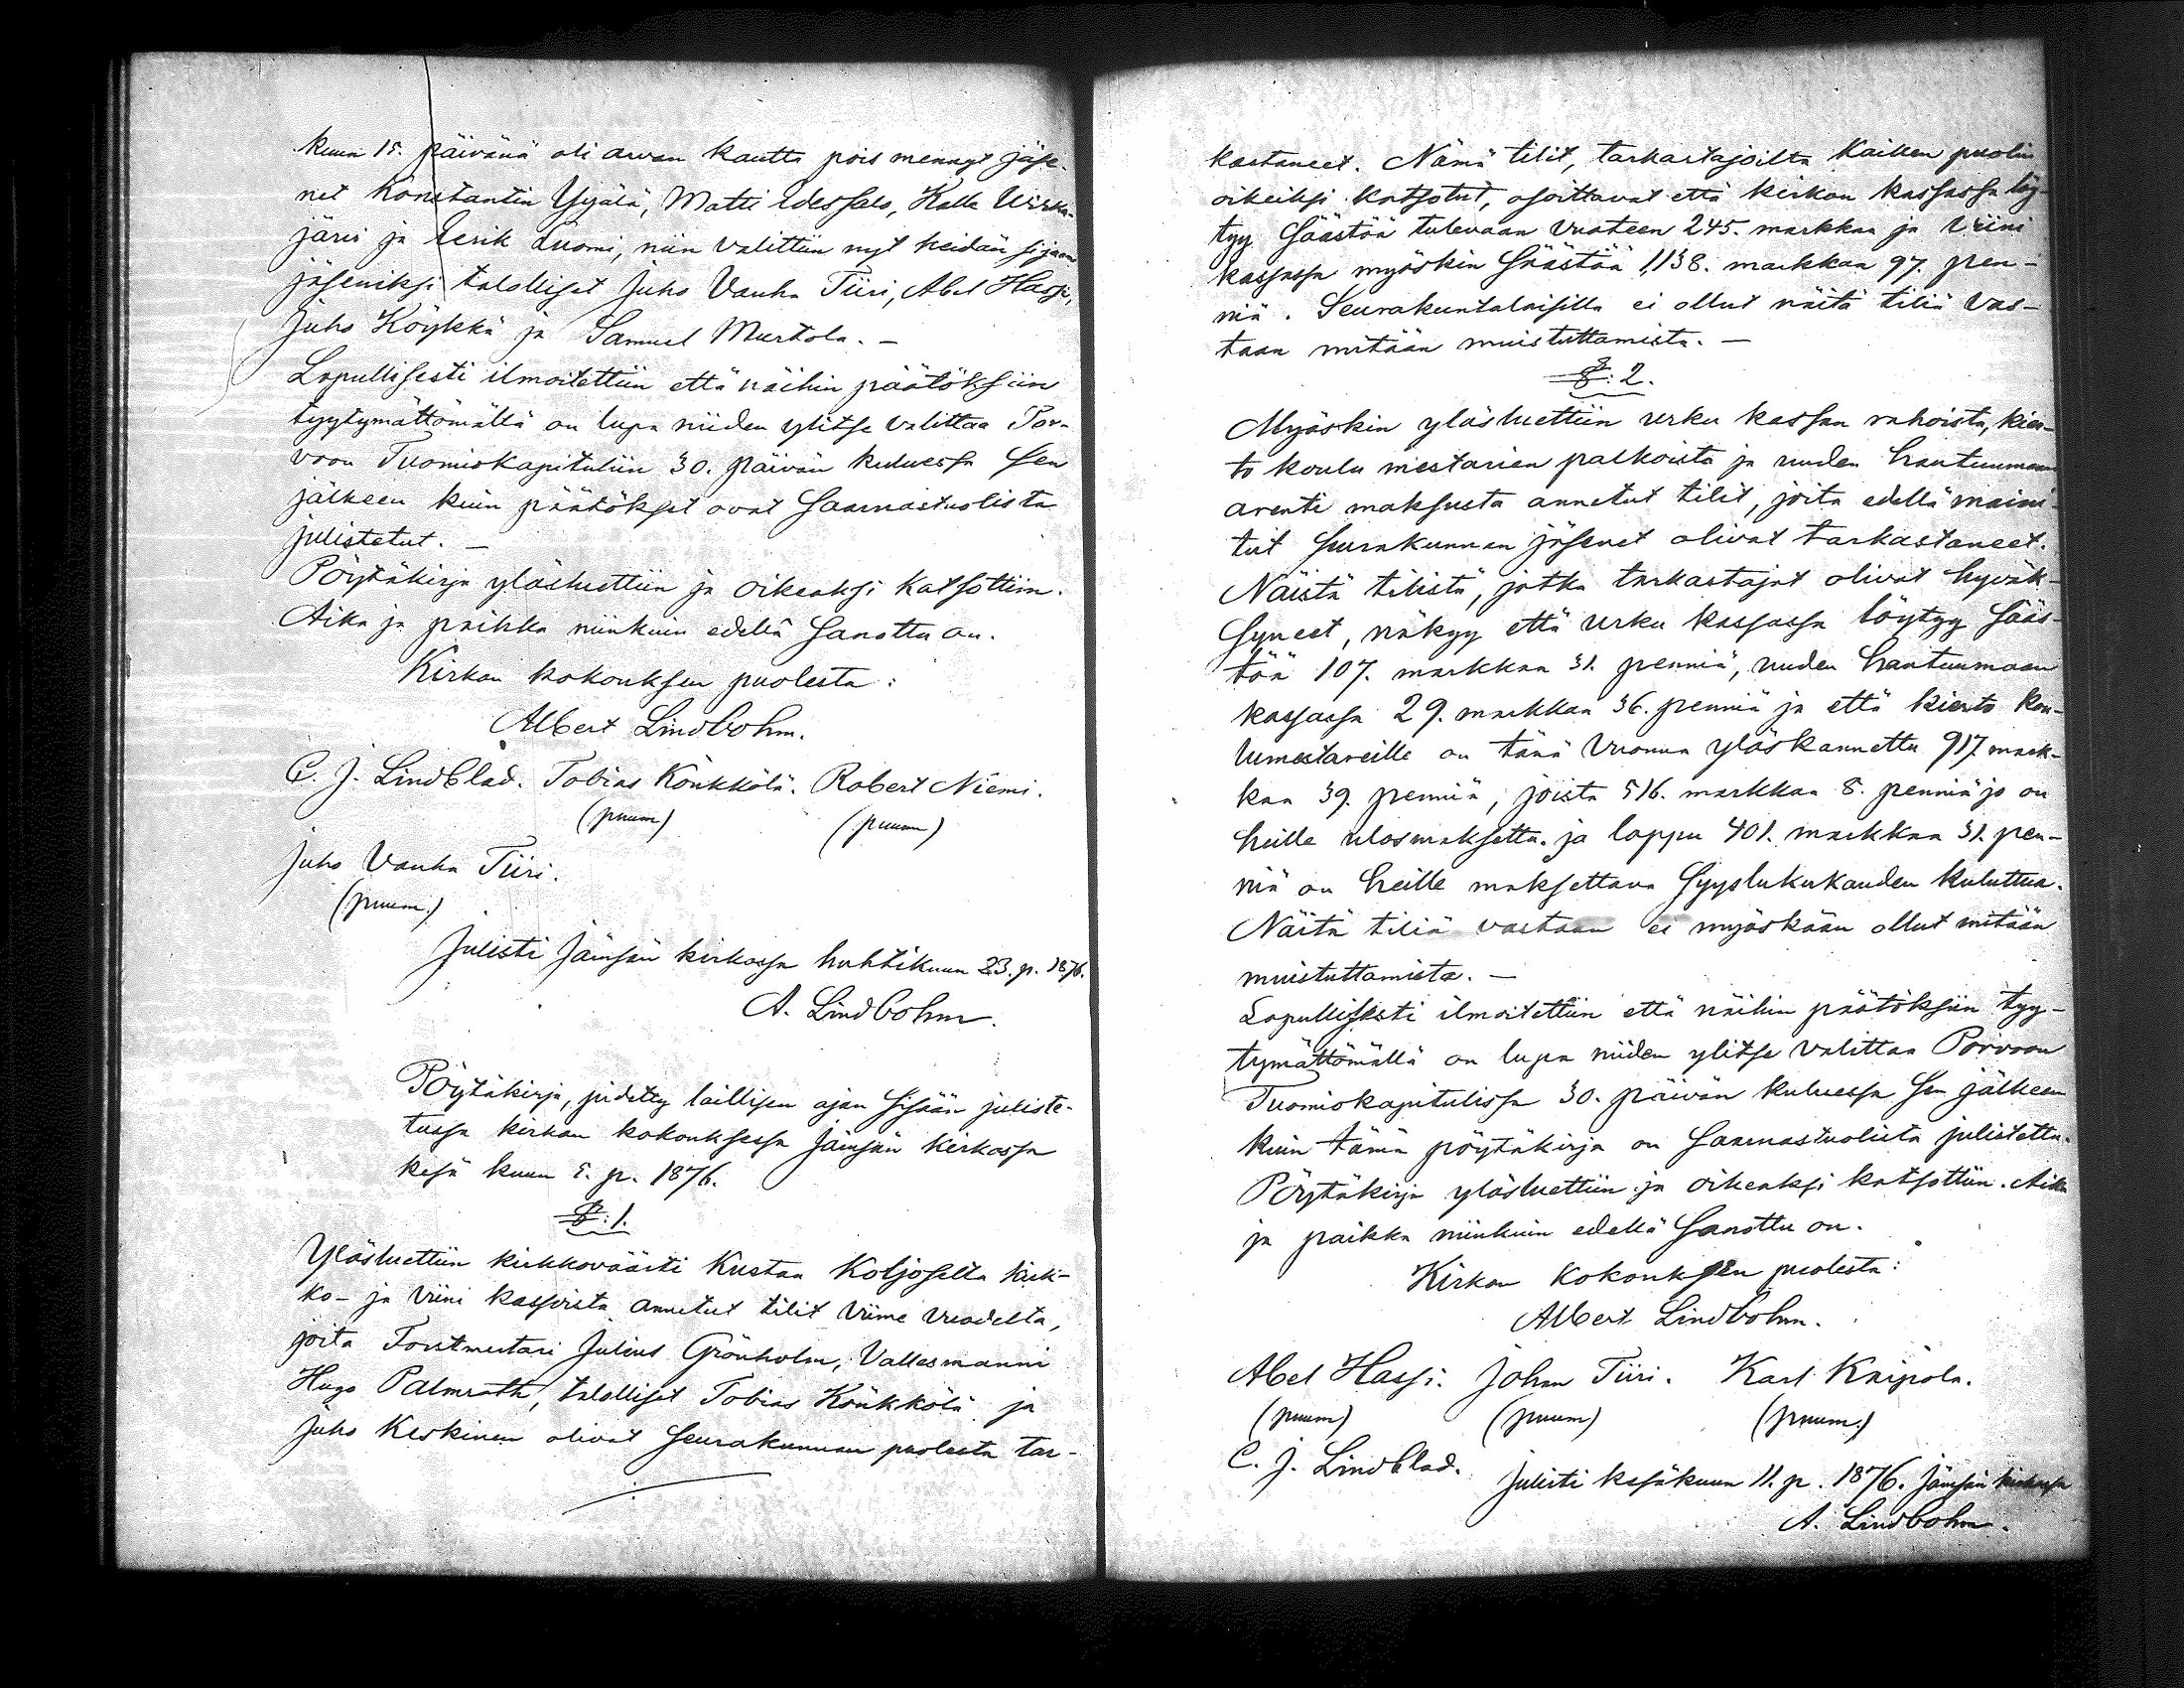 kuun 15. päivänä oli arvan kautta pois mennyt jäse-
net Konstantin Yijälä, Matti Edessalo, Kalle Wirka-
järvi ja Eerik Luomi, niin valittiin nyt heidän sijaan
jäseniksi talolliset Juho Vanha Tiiri, Abel Hassi,
Juho Köykkä ja Samuel Murtola. –
Lopullisesti ilmoitettiin että näihin päätöksiin
tyytymättömällä on lupa niiden ylitse valittaa Por-
voon Tuomiokapituliin 30. päivän kuluessa sen
jälkeen kuin päätökset ovat saarnastuolista
julistetut. –
Pöytäkirja ylösluettiin ja oikeaksi katsottiin.
Aika ja paikka niinkuin edellä sanottu on.
Kirkon kokouksen puolesta:
Albert Lindbohm.
C. J. Lindblad. Tobias Könkkölä. Robert Niemi.
(puum) (puum)
Juho Vanha Tiiri.
(puum.)
Julisti Jämsän kirkossa huhtikuun 23. p. 1876.
A. Lindbohm.
Pöytäkirja, pidetty laillisen ajan sisään juliste-
tussa kirkon kokouksessa Jämsän kirkossa
kesä kuun 5. p. 1876.
§: 1.
Ylösluettiin kirkkoväärti Kustaa Koljoselta kirk-
ko- ja viini kassoista annetut tilit viime vuodelta,
joita Forstmestari Julius Grönholm, Vallesmanni
Hugo Palmroth, talolliset Tobias Könkkölä ja
Juho Keskinen olivat seurakunnan puolesta tar-
kastaneet. Nämä tilit, tarkastajoilta kaiken puolin
oikeiksi katsotut, osoittavat että kirkon kassassa löy-
tyy säästöä tulevaan vuoteen 245. markkaa ja viini
kassassa myöskin säästöä 1138. markkaa 97. pen-
niä. Seurakuntalaisilla ei ollut näitä tiliä vas-
taan mitään muistuttamista. –
§: 2.
Myöskin ylösluettiin urku kassan rahoista, kier-
to koulu mestarien palkoista ja uuden hautuumaan
arenti maksusta annetut tilit, joita edellä maini-
tut seurakunnan jäsenet olivat tarkastaneet.
Näistä tilistä, jotka tarkastajat olivat hyväk-
syneet, näkyy että urku kassassa löytyy sääs-
töä 107. markkaa 31. penniä, uuden hautuumaan
kassassa 29. markkaa 36. penniä ja että kierto kou-
lumestareille on tänä vuonna ylöskannettu 917 mark-
kaa 39. penniä, joista 516. markkaa 8. penniä jo on
heille ulosmaksettu. ja loppu 401. markkaa 31. pen-
niä on heille maksettava syyslukukauden kuluttua.
Näitä tiliä vastaan ei myöskään ollut mitään
muistuttamista. –
Lopullisesti ilmoitettiin että näihin päätöksiin tyy-
tymättömällä on lupa niiden ylitse valittaa Porvoon
Tuomiokapitulissa 30. päivän kuluessa sen jälkeen
kuin tämä pöytäkirja on saarnastuolista julistettu.
Pöytäkirja ylösluettiin ja oikeaksi katsottiin. Aika
ja paikka niinkuin edellä sanottu on.
Kirkon kokouksen puolesta:
Albert Lindbohm.
Abel Hassi. Johan Tiiri. Karl Kaipola.
(puum) (puum) (puum.)
C. J. Lindblad.
Julisti kesäkuun 11. p. 1876. Jämsän kirkossa
A. Lindbohm.